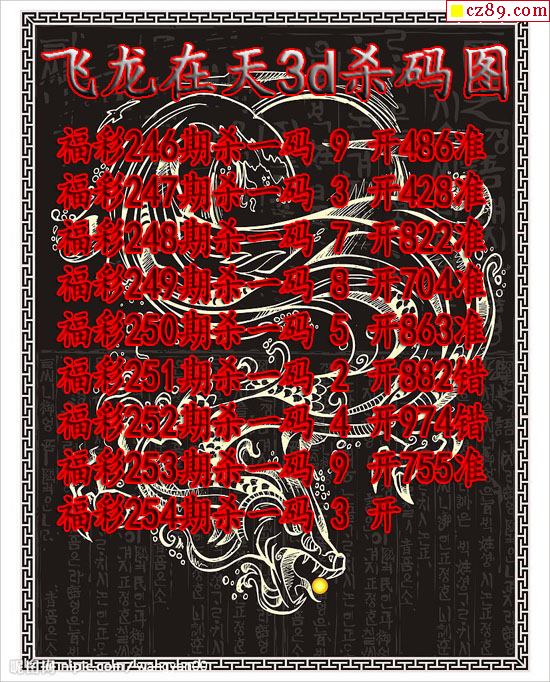 cz89.com
飞龙在天3d杀码图
福彩246期杀一码 9 开486准
福彩247期杀一码 3 开428准
福彩248期杀一码 7 开822准
福彩249期杀一码 8 开704准
福彩250期杀一码 5 开863准
福彩251期杀一码 2 开882错
福彩252期杀一码 4 开974错
福彩253期杀一码 9 开755准
福彩254期杀一码 3 开